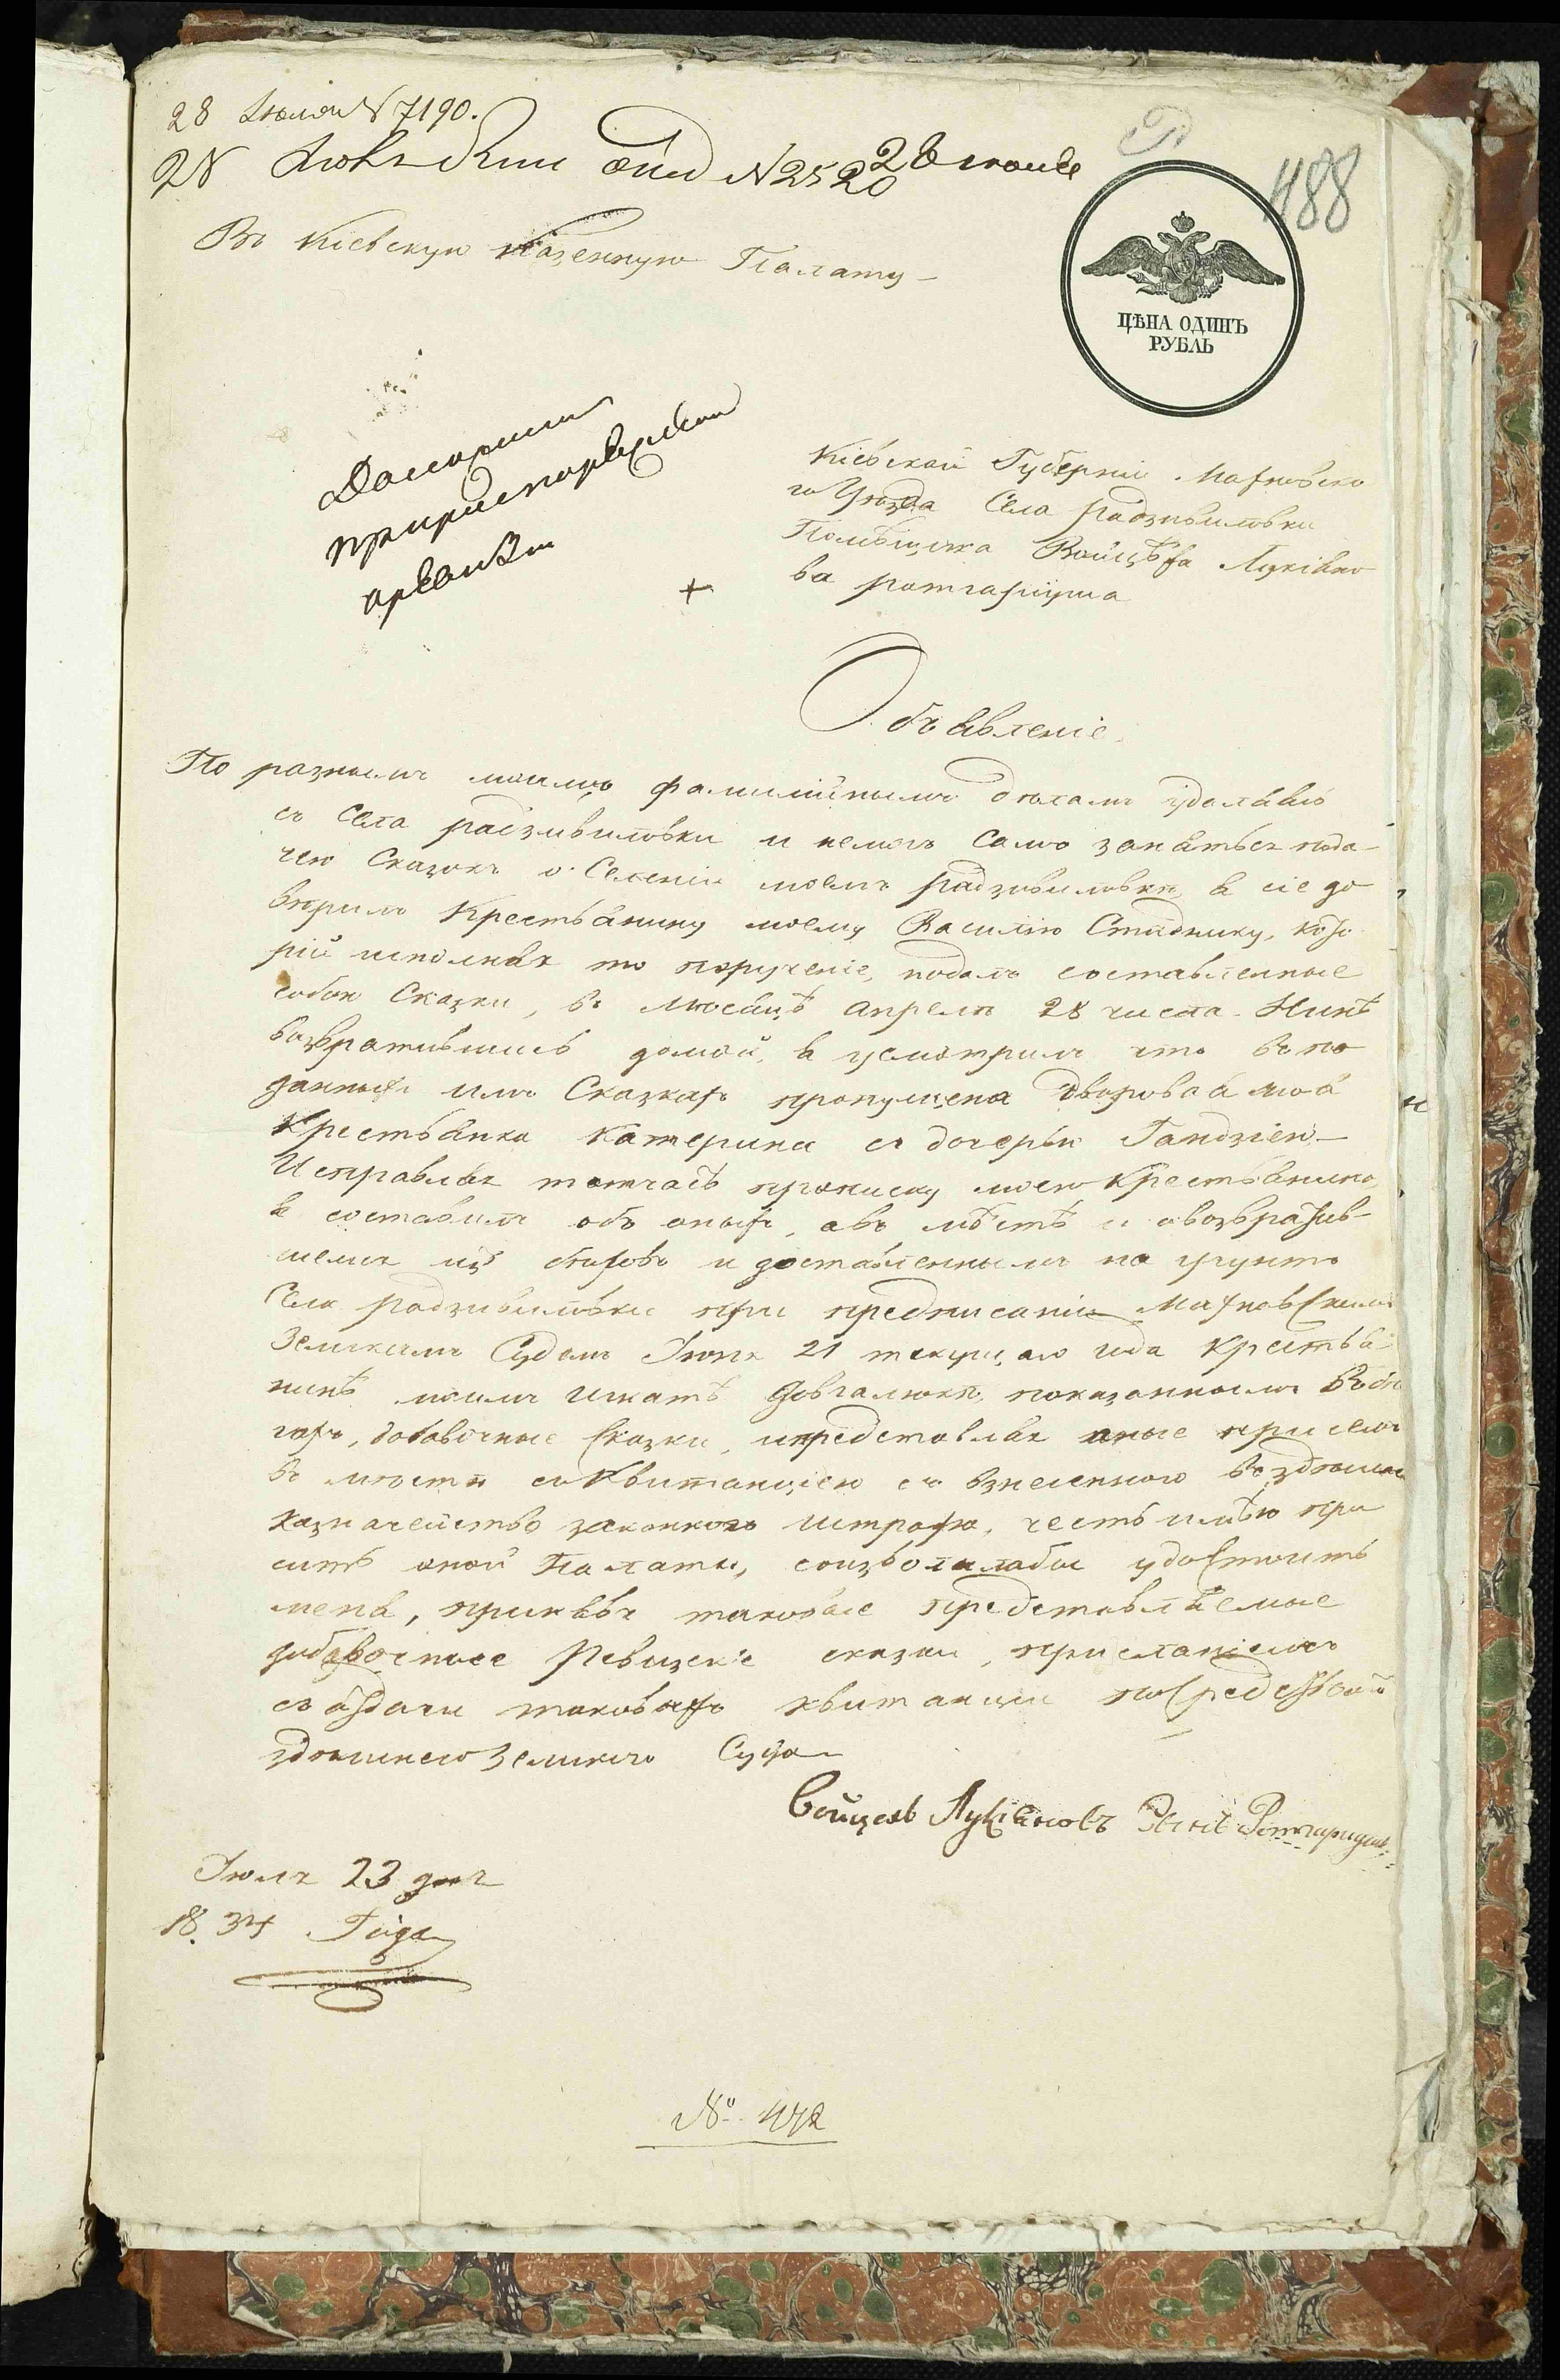 28 Июля N 7190.
28 Июля N 2520
488
Въ Кіевскую Казенную Палату
ЦѢНА ОДИНЪ
РУБЛЬ
Кіевской Губерніи Махновско
го Уѣзда Села Радзивиловки
Помѣщика Войцѣха Лукіяно
ва
Объявленіе
По разнымъ моимъ фамилійнымъ дѣламъ
съ Села Радзивиловки и немогъ самъ занятьсья пода-
чею Сказокъ о Селеніи моемъ Радзивиловки, я сіе до
вѣрилъ Крестьянину моему Василію Стаднику, кото
рій исполняя то порученіе, подалъ составленные
собою Сказки, въ мѣсяцѣ Апрелѣ 28 числа. Нинѣ
возвратившись домой, я усмотрилъ что въ по
данныхъ имъ Сказкахъ пропущена дворовая моя
Крестьянка Катерина съ дочерью Гандзіею
Исправляя тотчасъ прописку мою Крестьянино
я составилъ объ оныхъ, а въ мѣстѣ и о возвратив-
шемся изъ бѣговъ и доставленнымъ на грунтъ
Села Радзивиловки при предписаніи Махновскимъ
Земскимъ Судомъ Іюня 21 текущаго года Крестья-
нинѣ моимъ Игнатѣ показаннымъ въ бѣ
гахъ, добавочные Сказки, и представляя оные при семъ
въ мѣстѣ съ Квитанціею съ взнесенного въ здѣшнее
Казначейство законного штрафа, честь имѣю про
сить оной Палаты, соизволилабы удостоить
меня, принявъ таковые представляемые
добавочные Ревизскіе сказки, присланіемъ
въ отдачи таковыхъ квитанціи посредствомъ
здѣшнего Земского Суда
Войцехъ Лукіяновъ Сынъ
Іюля 23 дня
1834 Года
№ 442